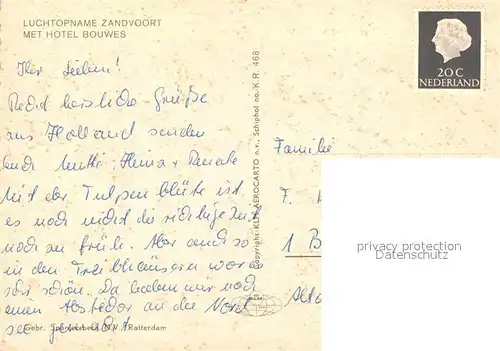 LUCHTOPNAME ZANDVOORT
MET HOTEL BOUWES
20 C
NEDERLAND
Ihr Lieben!
Recht herzliche Grüße
aus Holland senden
Euch Mutti,
Mit der Tulpenblüte ist
es noch nicht die richtige Zeit
noch zu früh. Aber auch so
in den Treibhäusern war es
sehr schön. Da haben wir noch
einen Abstecher an die Nord
see gemacht
Familie
F.
1 B
Copyright: KLM AEROCARTO n.v., Schiphol no. K.R. 468
Gebr. Spanjersberg N.V., Rotterdam
privacy protection